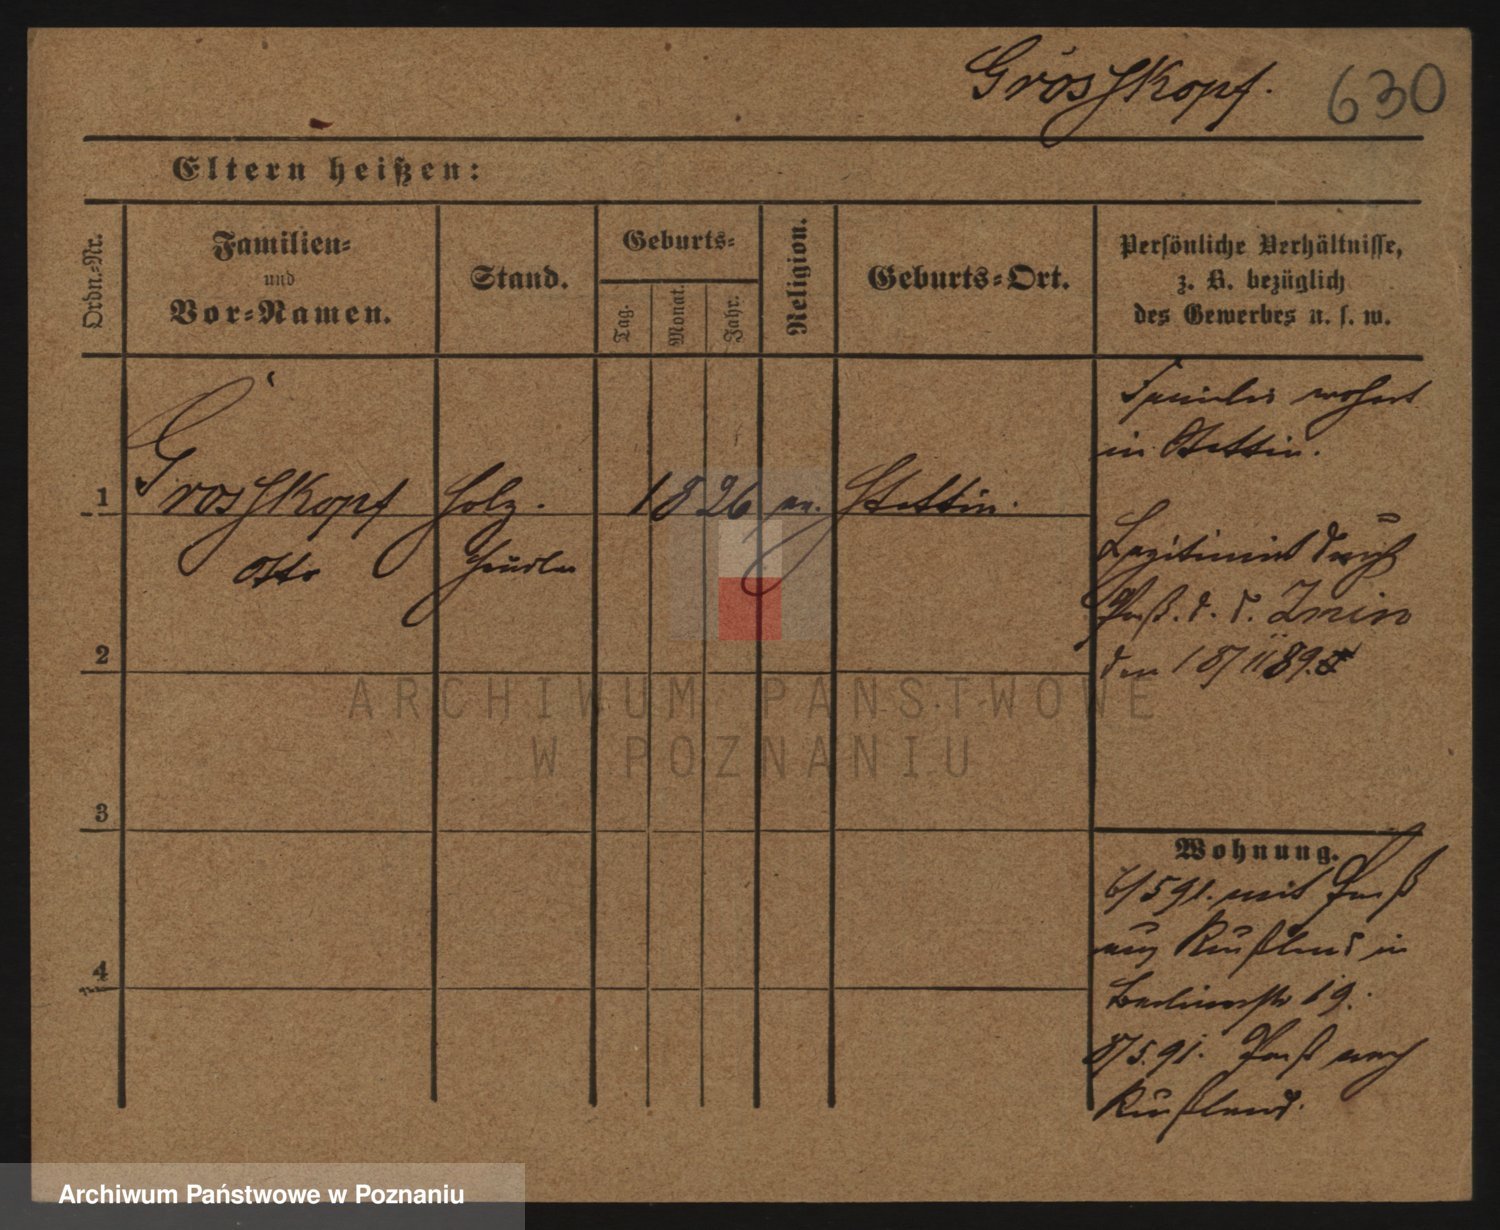 Grosskopf.
630
Eltern heißen:
Ordn.-Nr.
Familien-
und
Vor-Namen.
Stand.
Geburts-
Tag.
Monat.
Jahr.
Religion.
Geburts-Ort.
Persönliche Verhältnisse,
z. B. bezüglich
des Gewerbes u. s. w.
1
Grosskopf
Otto
Holz-
händler
1826
ev.
Stettin.
Familie wohnt
in Stettin.
Legitimirt durch
Paß. d. d.
den 18/11 89.
2
3
4
Wohnung.
6/5 91. mit Paß
aus Rußland in
Berlinerstr 19.
8/5. 91. Paß nach
Rußland.
ARCHIWUM PAŃSTWOWE
W POZNANIU
Archiwum Państwowe w Poznaniu